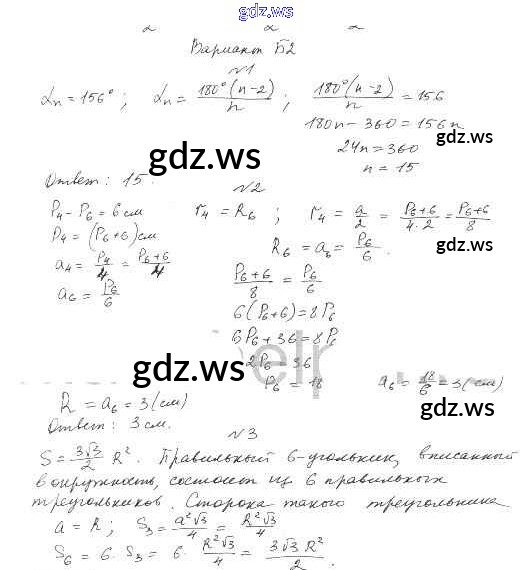 gdz.ws
Вариант Б2
№1
αn = 156°; αn = 180°(n-2)/n; 180°(n-2)/n = 156
180n - 360 = 156n
24n = 360
n = 15
gdz.ws
gdz.ws
Ответ: 15.
№2
P4 - P6 = 6 см
r4 = R6; r4 = a/2 = P6+6/4·2 = P6+6/8
P4 = (P6+6) см
R6 = a6 = P6/6.
gdz.ws
a4 = P4/4 = P6+6/4
a6 = P6/6
P6+6/8 = P6/6
6(P6+6) = 8P6
6P6 + 36 = 8P6
2P6 = 36
P6 = 18
a6 = 18/6 = 3 (см)
gdz.ws
gdz.ws
R = a6 = 3 (см)
Ответ: 3 см.
№3
S = 3√3/2 R². Правильный 6-угольник, вписанный
в окружность, состоит из 6 правильных
треугольников. Сторона такого треугольника
a = R; S3 = a²√3/4 = R²√3/4
S6 = 6·S3 = 6·R²√3/4 = 3√3R²/2.
gdz.ws
gdz.ws